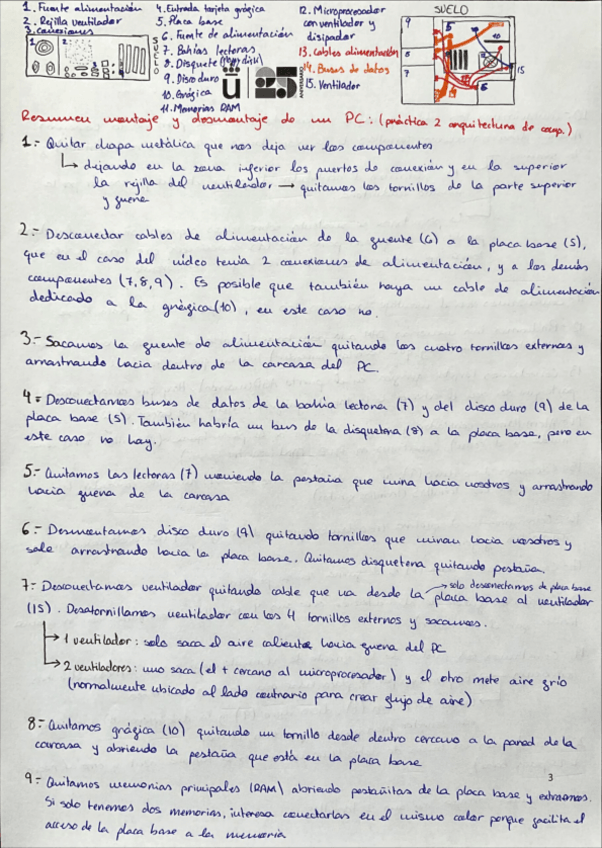 1. Fuente alimentación
2. Rejilla ventilador
3. conexiones
4. Entrada tarjeta gráfica
5. Placa base
6. Fuente de alimentación
7. Bahías lectoras
8. Disquete
9. Disco duro
10. Gráfica
11. Memorias RAM
12. Microprocesador con ventilador y disipador
13. Cables alimentación
14. Buses de datos
15. Ventilador
SUELO
ü 25
Resumen montaje y desmontaje de un PC: (práctica 2 arquitectura de comp.)
1.- Quitar chapa metálica que nos deja ver los componentes
↳ dejando en la zona inferior los puertos de conexión y en la superior
la rejilla del ventilador → quitamos los tornillos de la parte superior
y fuera
2.- Desconectar cables de alimentación de la fuente (6) a la placa base (5),
que en el caso del video tenía 2 conexiones de alimentación, y a los demás
componentes (7,8,9). Es posible que también haya un cable de alimentación
dedicado a la gráfica (10), en este caso no.
3.- Sacamos la fuente de alimentación quitando los cuatro tornillos externos y
arrastrando hacia dentro de la carcasa del PC.
4.- Desconectamos buses de datos de la bahía lectora (7) y del disco duro (9) de la
placa base (5). También habría un bus de la disquetera (8) a la placa base, pero en
este caso no hay.
5.- Quitamos las lectoras (7) moviendo la pestaña que mira hacia nosotros y arrastrando
hacia fuera de la carcasa
6.- Desmontamos disco duro (9) quitando tornillos que miran hacia nosotros y
sale arrastrando hacia la placa base. Quitamos disquetera quitando pestaña.
7.- Desconectamos ventilador quitando cable que va desde la placa base al ventilador
→ solo desconectamos de placa base
(15). Desatornillamos ventilador con los 4 tornillos externos y sacamos.
→ 1 ventilador: solo saca el aire caliente hacia fuera del PC
→ 2 ventiladores: uno saca (el + cercano al microprocesador) y el otro mete aire frío
(normalmente ubicado al lado contrario para crear flujo de aire)
8.- Quitamos gráfica (10) quitando un tornillo desde dentro cercano a la pared de la
carcasa y abriendo la pestaña que está en la placa base
3
9.- Quitamos memorias principales (RAM) abriendo pestañitas de la placa base y extraemos.
Si solo tenemos dos memorias, interesa conectarlas en el mismo color porque facilita el
acceso de la placa base a la memoria